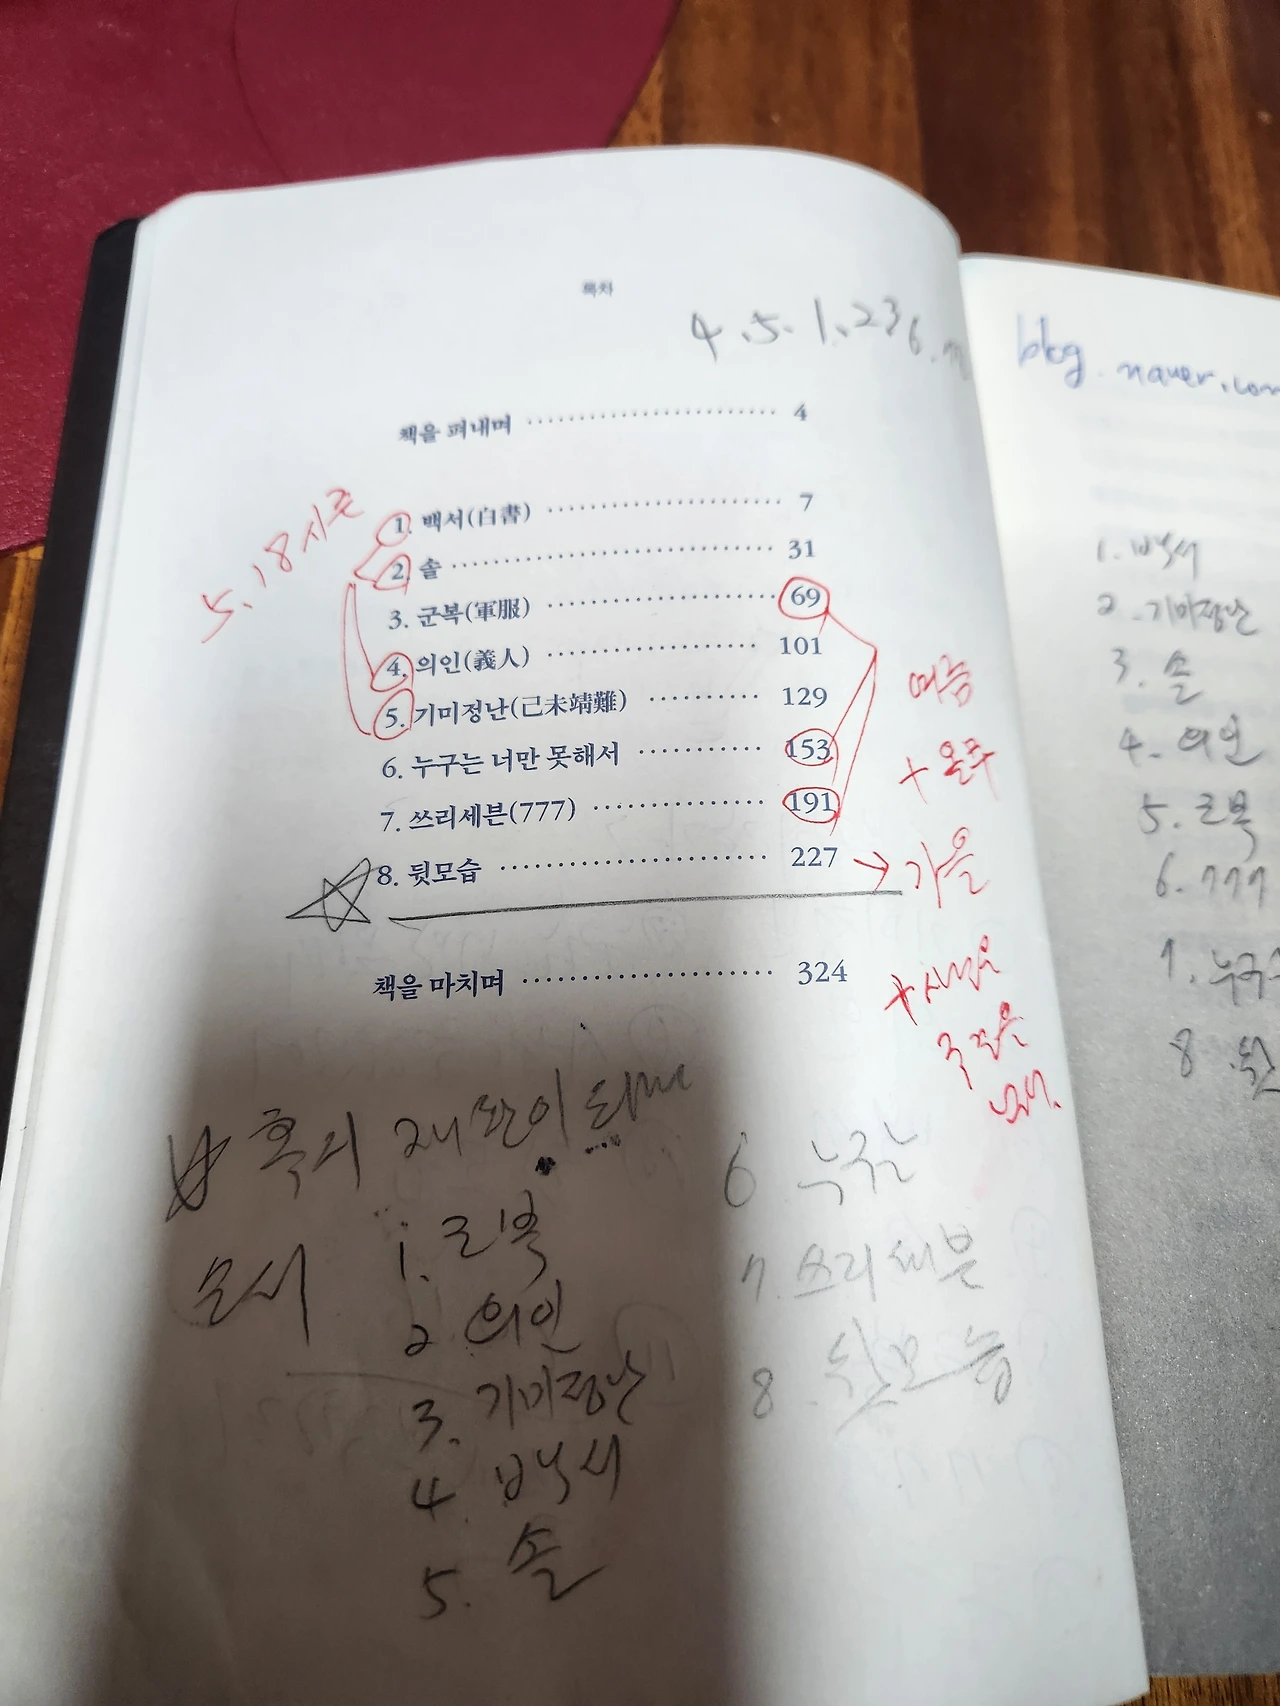 목차
4.5.1.236.
책을 펴내며 ························ 4
5.18
1. 백서(白書) ······················ 7
2. 솔 ······························ 31
3. 군복(軍服) ······················ 69
4. 의인(義人) ······················ 101
5. 기미정난(己未靖難) ·········· 129
6. 누구는 너만 못해서 ··········· 153
7. 쓰리세븐(777) ················· 191
8. 뒷모습 ························· 227
책을 마치며 ······················ 324
→ 가을
혹시 재판이 되면
순서
1. 군복
2. 의인
3. 기미정난
4. 백서
5. 솔
6. 누구는
7. 쓰리세븐
8. 뒷모습
blog.naver.com
1. 백서
2. 기미정난
3. 솔
4. 의인
5. 군복
6. 777
7. 누구
8. 뒷